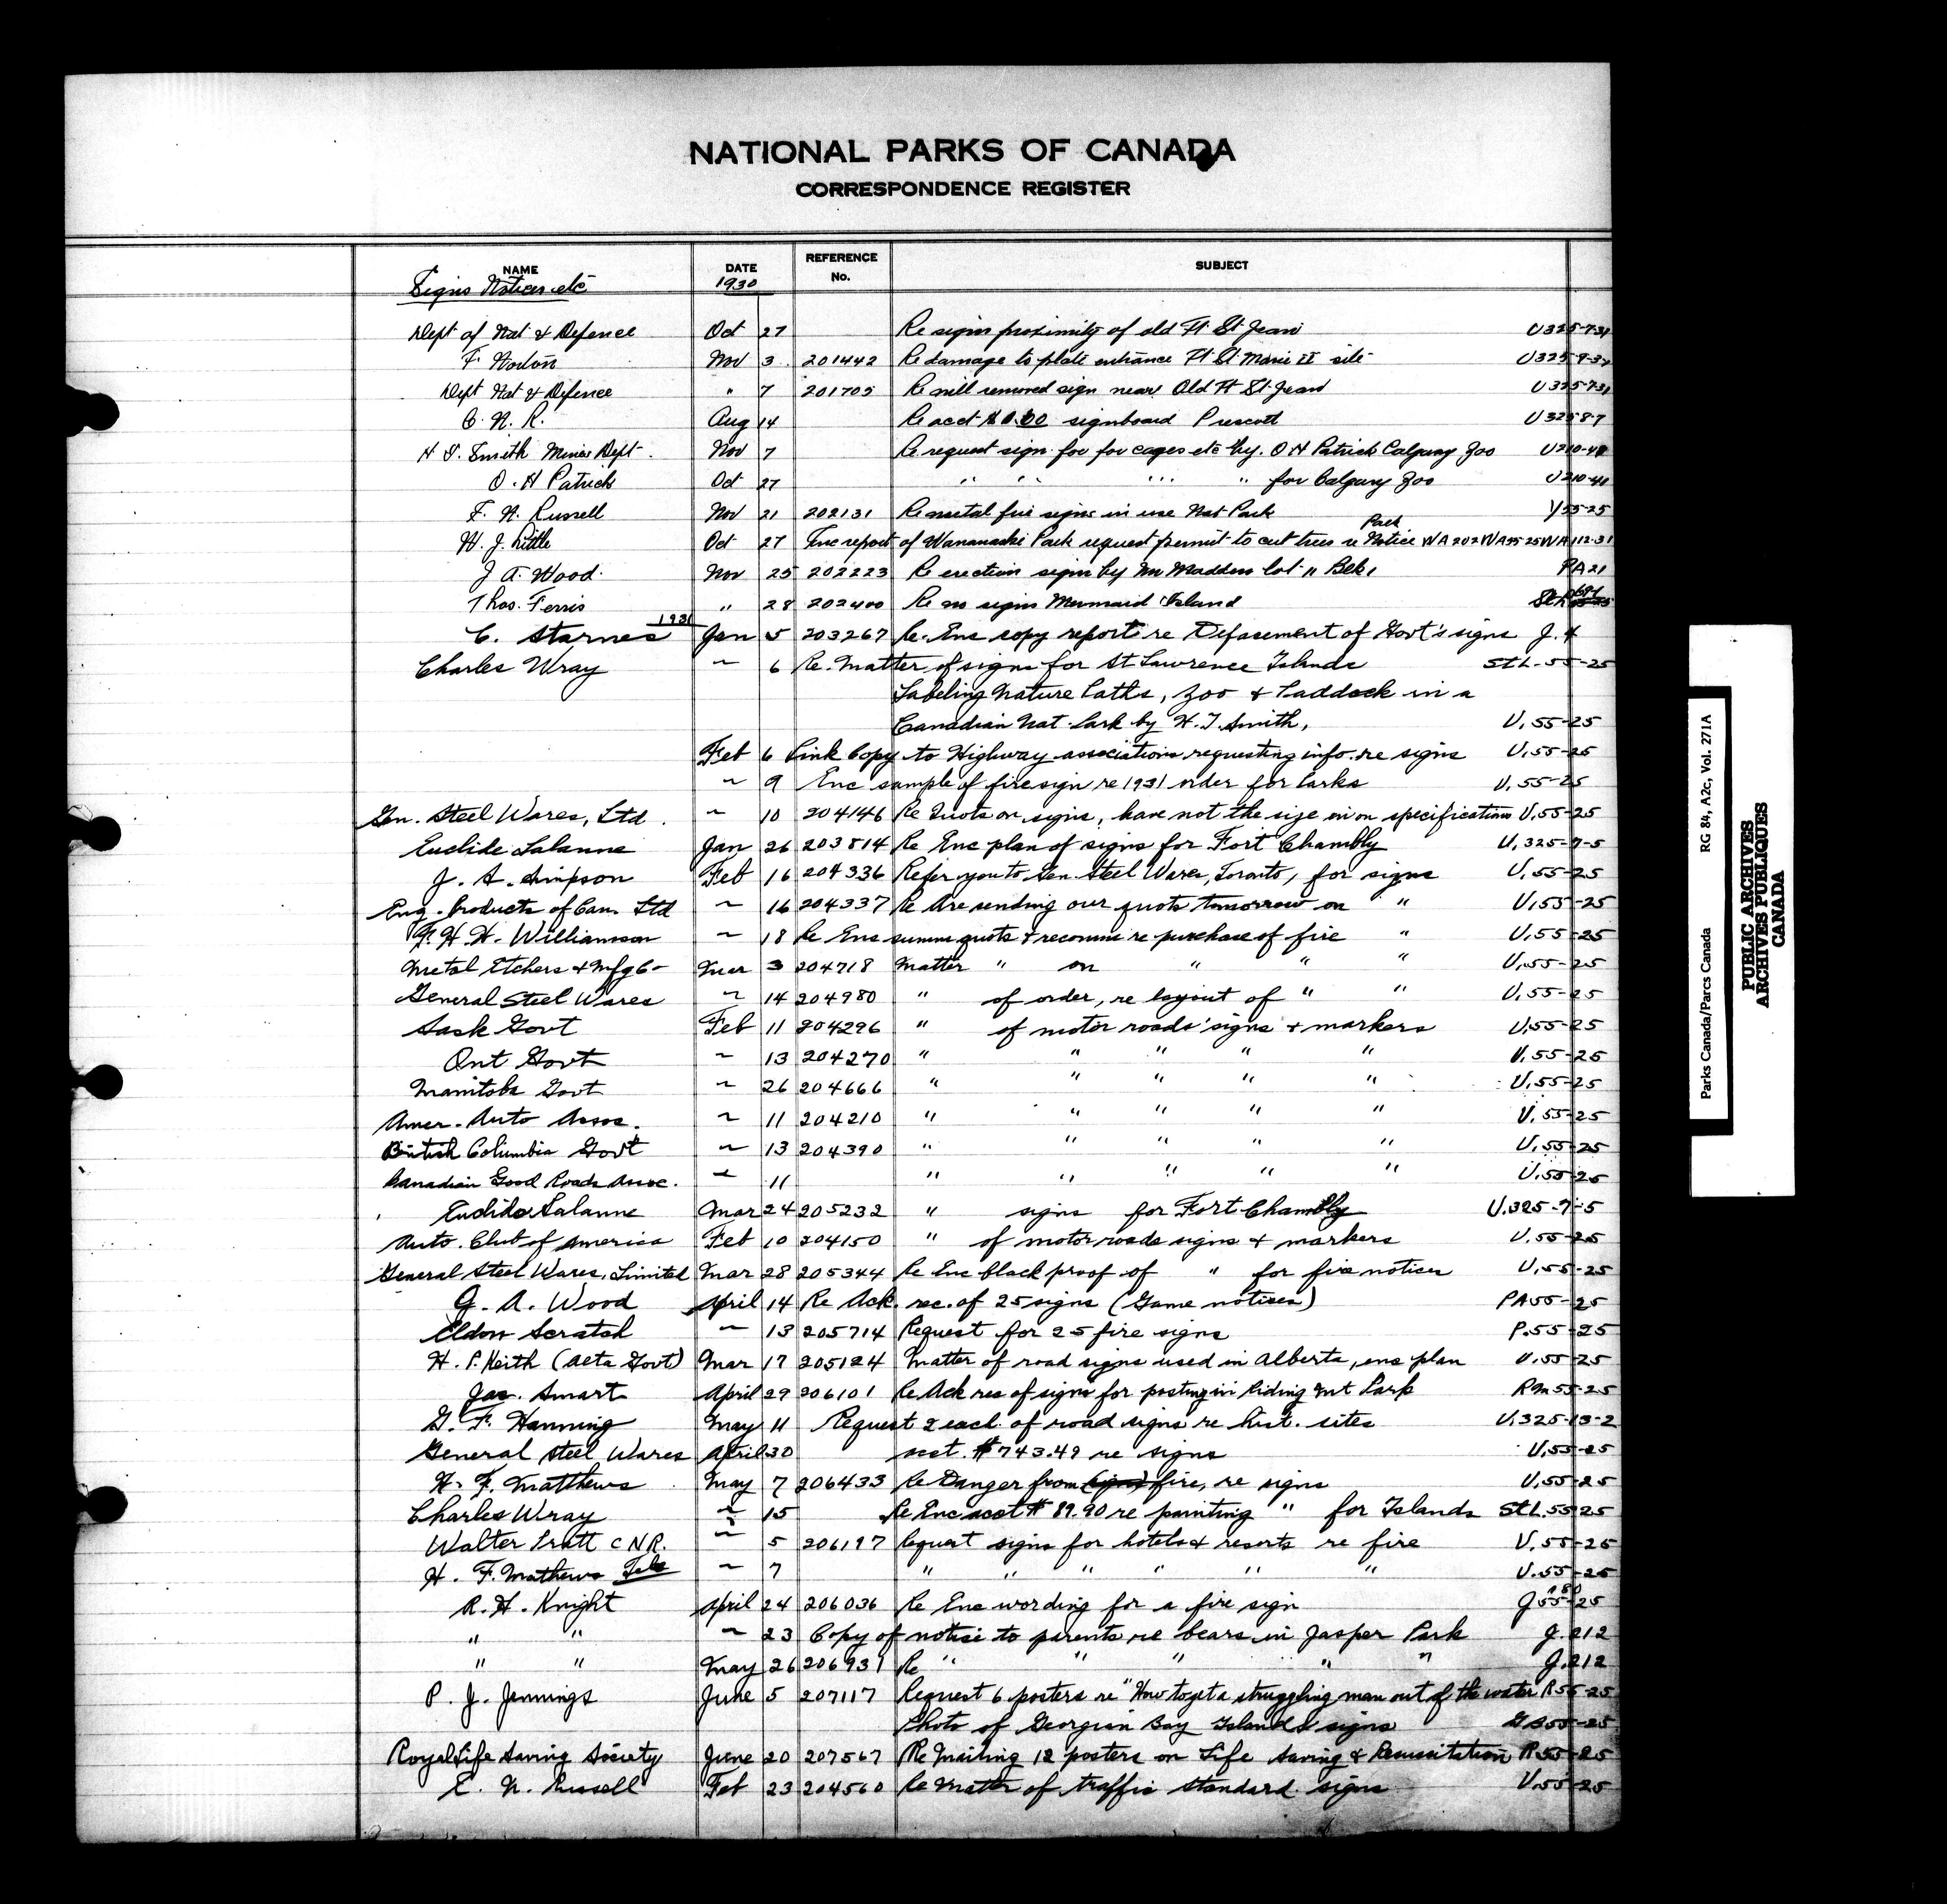 NATIONAL PARKS OF CANADA
CORRESPONDENCE REGISTER
NAME DATE REFERENCE No. SUBJECT
Signs Notices etc 1930
Dept of Nat & Defence Oct 27 Re signs proximity of old Ft St Jean U325-7-31
F. Nodon Nov 3 201442 Re damage to plate entrance Ft St Marie II site U325-9-37
Dept Nat & Defence " 7 201705 Re will removed sign near Old Ft St Jean U325-7-31
C. N. R. Aug 14 Re acct signboard Prescott U325-8-7
H I. Smith Mines Dept. Nov 7 Re request sign for for cages etc by. O H Patrick Calgary Zoo U210-41
O. H Patrick Oct 27 " " " " for Calgary Zoo U210-41
F. N. Russell Nov 21 202131 Re metal fire signs in use Nat Park 55-25
W. J. Little Oct 27 Enc report of Wawaskesy Park request permit to cut trees re Park Notice WA202 WA55-25 WA112-31
J A. Wood. Nov 25 202223 Re erection signs by Mr Madden lot 11 Belk, PA21
Thos. Ferris " 28 202400 Re no signs Mermaid Island
1931
C. Starnes Jan 5 203267 Re. Enc copy reports re Defasement of Govt's signs J. 4
Charles Wray ~ 6 Re. Matter of signs for St Lawrence Islands St L-55-25
Labeling Nature Paths, Zoo & Paddock in a
Canadian Nat Park by H. I. Smith, U. 55-25
Feb 6 Pink Copy to Highway associations requesting info. re signs U. 55-25
~ 9 Enc sample of fire sign re 1931 order for Parks U. 55-25
Gen. Steel Wares, Ltd. ~ 10 204146 Re Quote on signs, have not the size on specifications U. 55-25
Euclide Lalanne Jan 26 203814 Re Enc plan of signs for Fort Chambly U. 325-7-5
J. A. Simpson Feb 16 204336 Refer you to Gen. Steel Wares, Toronto, for signs U. 55-25
Eng. Products of Can. Ltd ~ 16 204337 Re Are sending our quots tomorrow on " U. 55-25
F. H. H. Williamson ~ 18 Re Enc summ quots & recomm re purchase of fire " U. 55-25
Metal Etchers & Mfg Co Mar 3 204718 Matter " on " " " U. 55-25
General Steel Wares ~ 14 204980 " of order, re layout of " " U. 55-25
Sask Govt Feb 11 204296 " of motor roads' signs & markers U. 55-25
Ont Govt ~ 13 204270 " " " " " U. 55-25
Manitoba Govt ~ 26 204666 " " " " " U. 55-25
Amer. Auto Assoc. ~ 11 204210 " " " " " U. 55-25
British Columbia Govt ~ 13 204390 " " " " " U. 55-25
Canadian Good Roads Assoc. ~ 11 " " " " " U. 55-25
Euclide Lalanne Mar 24 205232 " signs for Fort Chambly U. 325-7-5
Auto. Club of America Feb 10 204150 " of motor roads signs & markers U. 55-25
General Steel Wares, Limited Mar 28 205344 Re Enc black proof of " for fire notices U. 55-25
J. A. Wood April 14 Re Ack. rec. of 25 signs (Game notices) PA 55-25
Eldon Scratch ~ 13 205714 Request for 25 fire signs P. 55-25
H. P. Keith (Alta Govt) Mar 17 205124 Matter of road signs used in Alberta, enc plan U. 55-25
Jas. Smart April 29 206101 Re Ack rec of signs for posting in Riding Mt Park RM 55-25
G. F. Hanning May 11 Request 2 each of road signs re hist. sites U. 325-13-2
General Steel Wares April 30 acct. $743.49 re signs U. 55-25
H. F. Matthews May 7 206433 Re Danger from (signs) fire, re signs U. 55-25
Charles Wray ~ 15 Re Enc acct $ 89.90 re painting " for Islands St L. 55-25
Walter Pratt C N R. ~ 5 206197 Request signs for hotels & resorts re fire U. 55-25
H. F. Mathews ~ 7 " " " " " " U. 55-25
R. H. Knight April 24 206036 Re Enc wording for a fire sign J 55-25
" " ~ 23 Copy of notice to parents re bears in Jasper Park J. 212
" " May 26 206931 Re " " " " " J. 212
P. J. Jennings June 5 207117 Request 6 posters re "How to get a struggling man out of the water R 55-25
Photo of Georgian Bay Islands signs GB 55-25
Royal Life Saving Society June 20 207567 Re Mailing 12 posters on Life Saving & Resusitation R 55-25
E. N. Russell Feb 23 204560 Re Matter of traffic standard signs U. 55-25
Parks Canada/Parcs Canada RG 84, A2c, Vol. 271A
PUBLIC ARCHIVES
ARCHIVES PUBLIQUES
CANADA